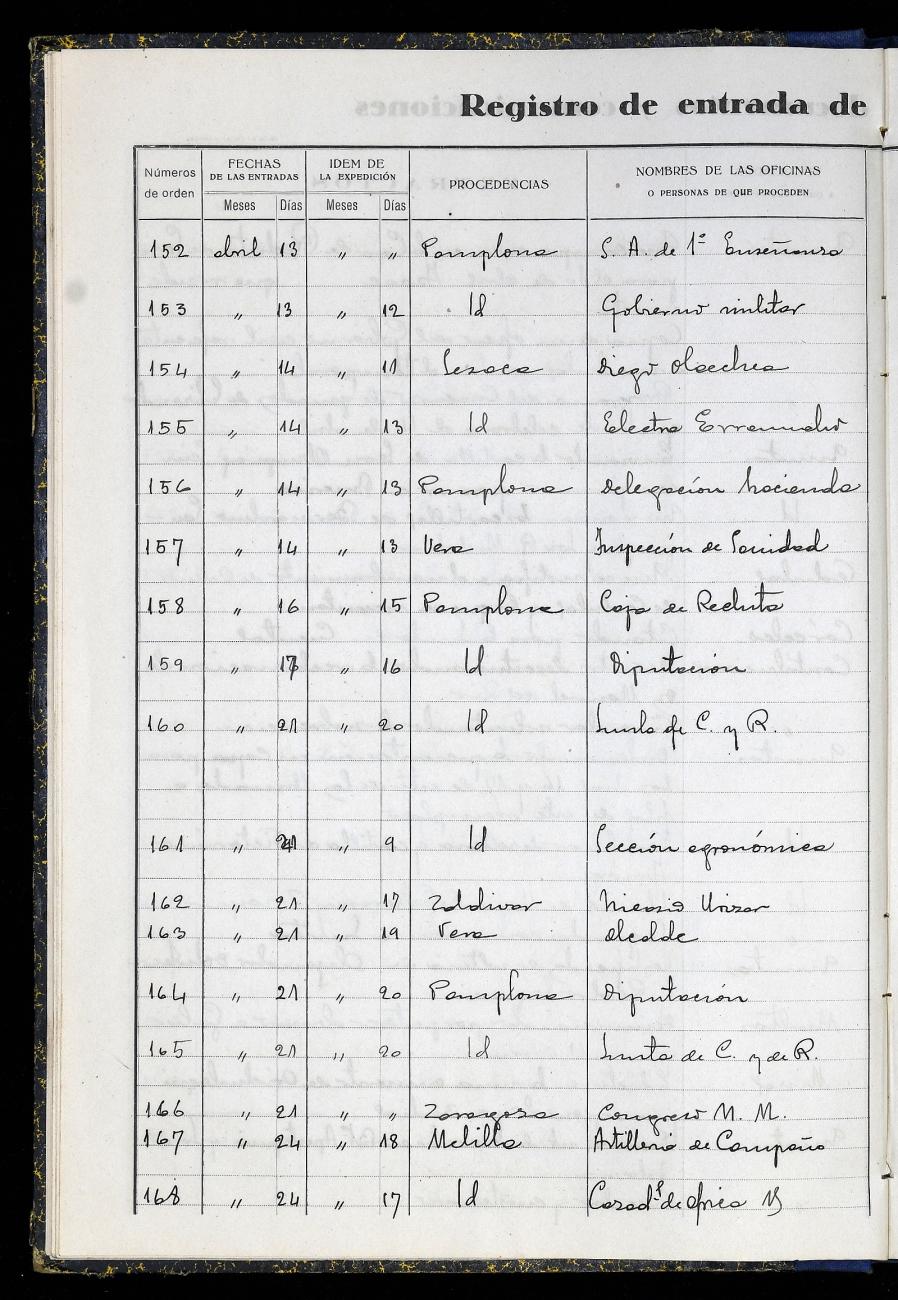 Registro de entrada de
Números de orden
FECHAS DE LAS ENTRADAS
IDEM DE LA EXPEDICIÓN
PROCEDENCIAS
NOMBRES DE LAS OFICINAS O PERSONAS DE QUE PROCEDEN
Meses Días Meses Días
152 abril 13 " " Pamplona S. A. de 1ª Enseñanza
153 " 13 " 12 Id Gobierno militar
154 " 14 " 11 Lesaca Diego Olaechea
155 " 14 " 13 Id Electra
156 " 14 " 13 Pamplona Delegación hacienda
157 " 14 " 13 Vera Inspección de Sanidad
158 " 16 " 15 Pamplona Caja de Recluta
159 " 17 " 16 Id Diputación
160 " 21 " 20 Id Junta de C. y R.
161 " 21 " 9 Id Sección agronómica
162 " 21 " 17 Zaldivar Nicasio Urizar
163 " 21 " 19 Vera alcalde
164 " 21 " 20 Pamplona Diputación
165 " 21 " 20 Id Junta de C. y de R.
166 " 21 " " Zaragoza Congreso M. M.
167 " 24 " 18 Melilla Artilleria de Campaña
168 " 24 " 17 Id